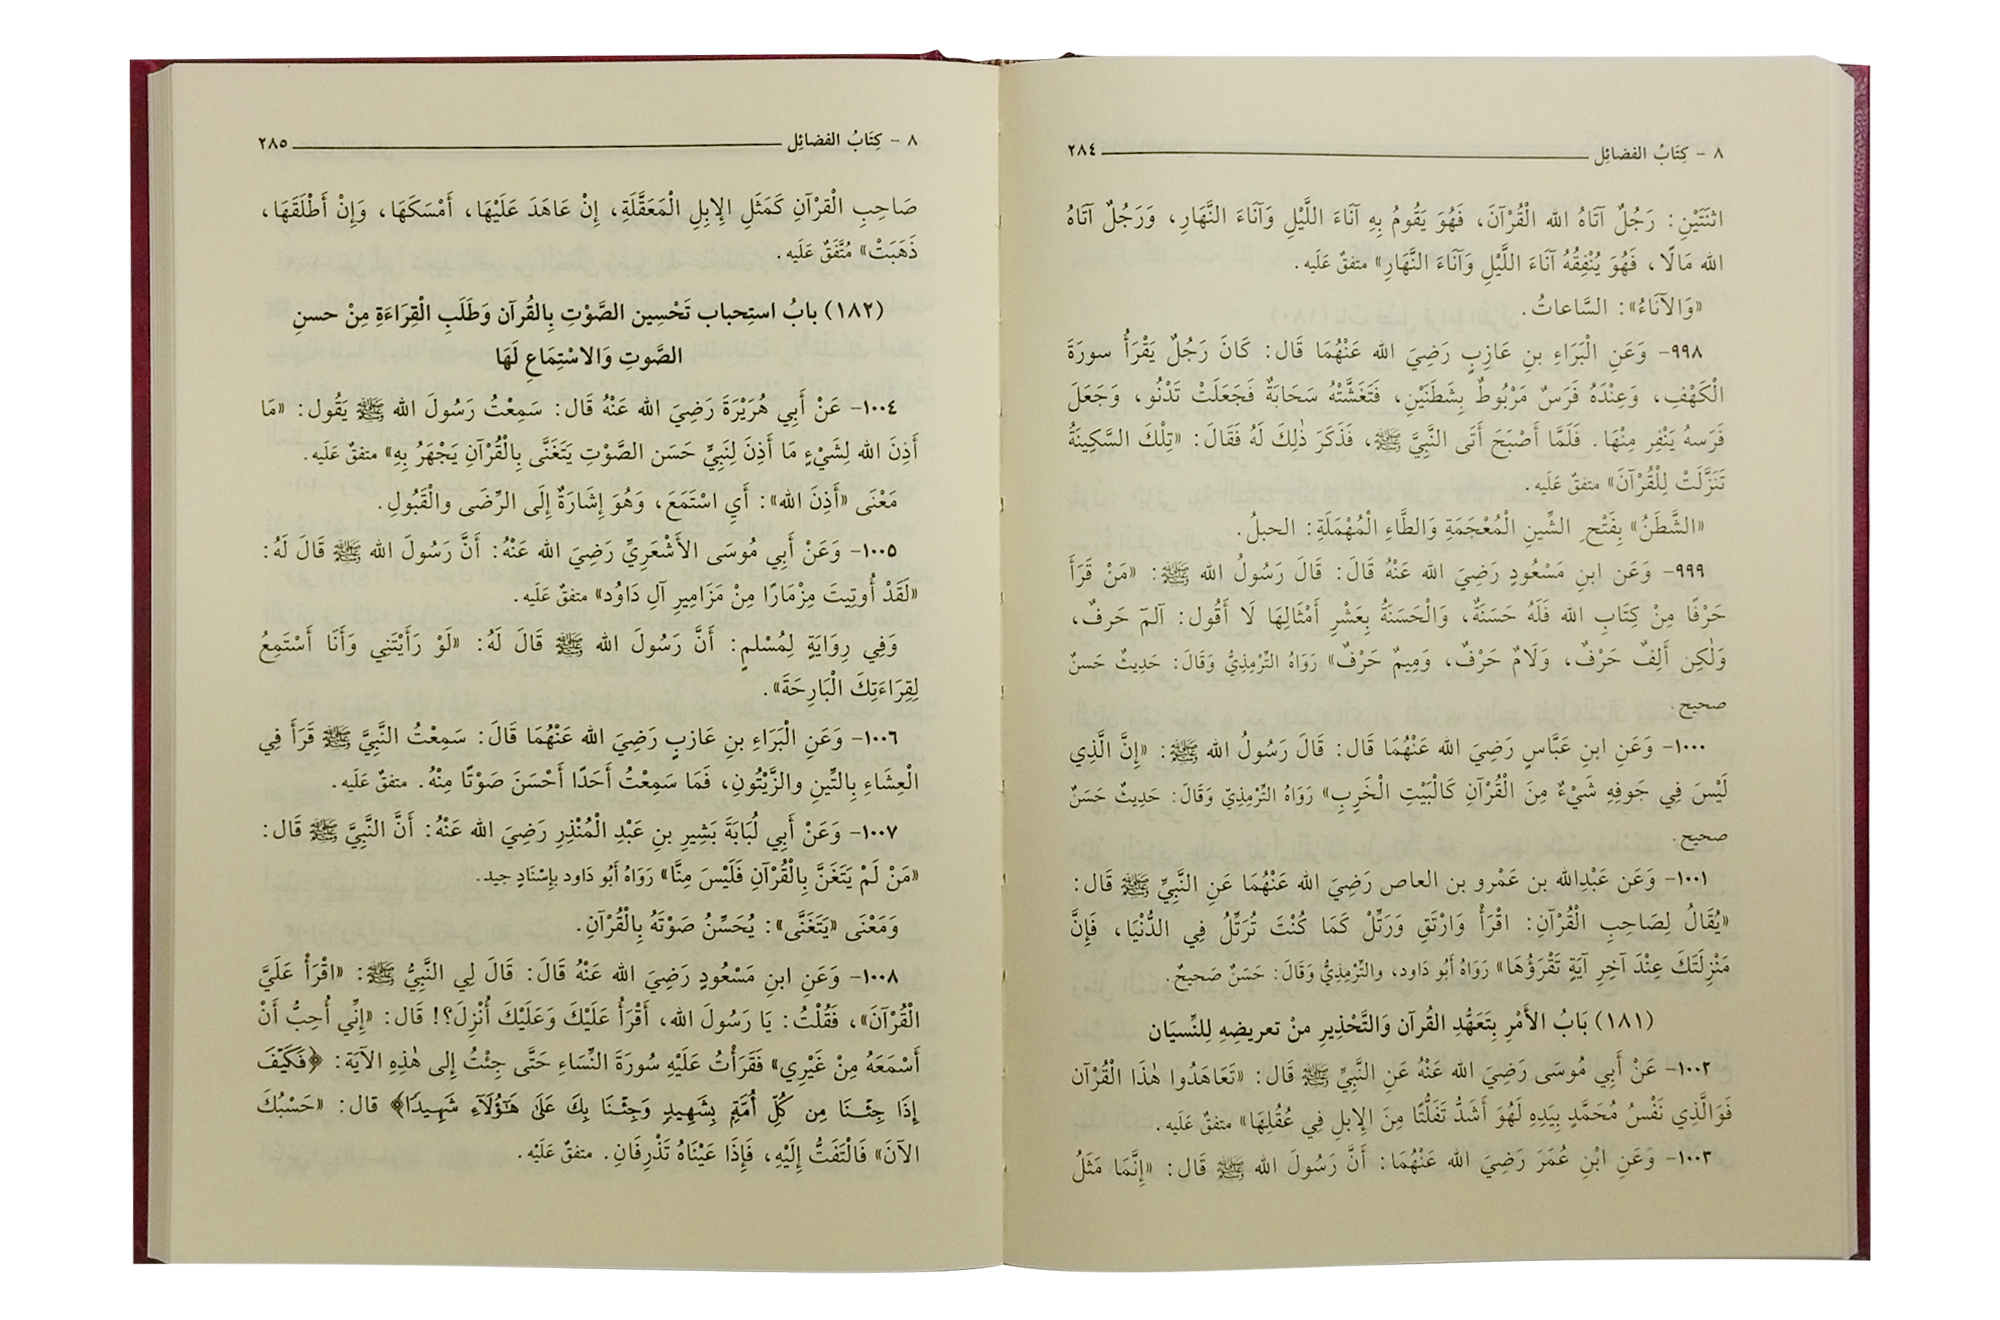 ٨ - كِتَابُ الفضائِل ٢٨٤
اثنَتَيْنِ: رَجُلٌ آتَاهُ الله الْقُرْآنَ، فَهُوَ يَقُومُ بِهِ آنَاءَ اللَّيْلِ وَآنَاءَ النَّهَارِ، وَرَجُلٌ آتَاهُ
الله مَالًا، فَهُوَ يُنْفِقُهُ آنَاءَ اللَّيْلِ وَآنَاءَ النَّهَارِ» متفقٌ عَلَيه.
«وَالآنَاءُ»: السَّاعاتُ.
٩٩٨- وَعَنِ الْبَرَاءِ بنِ عَازِبٍ رَضِيَ الله عَنْهُمَا قَال: كَانَ رَجُلٌ يَقْرَأُ سورَةَ
الْكَهْفِ، وَعِنْدَهُ فَرَسٌ مَرْبُوطٌ بِشَطَنَيْنِ، فَتَغَشَّتْهُ سَحَابَةٌ فَجَعَلَتْ تَدْنُو، وَجَعَلَ
فَرَسهُ يَنْفِر مِنْهَا. فَلَمَّا أَصْبَحَ أَتَى النَّبِيَّ ﷺ، فَذَكَرَ ذٰلِكَ لَهُ فَقَالَ: «تِلْكَ السَّكِينَةُ
تَنَزَّلَتْ لِلْقُرْآنَ» متفقٌ عَلَيه.
«الشَّطَنُ» بِفَتْحِ الشِّينِ الْمُعْجَمَةِ وَالطَّاءِ الْمُهْمَلَةِ: الحبلُ.
٩٩٩- وَعَن ابنِ مَسْعُودٍ رَضِيَ الله عَنْهُ قَالَ: قَالَ رَسُولُ الله ﷺ: «مَنْ قَرَأَ
حَرْفًا مِنْ كِتَابِ الله فَلَهُ حَسَنَةٌ، وَالْحَسَنَةُ بِعَشْرِ أَمْثَالِهَا لَا أَقُول: آلمَ حَرفٌ،
وَلٰكِن أَلِفٌ حَرْفٌ، وَلَامٌ حَرْفٌ، وَمِيمٌ حَرْفٌ» رَوَاهُ التِّرْمِذِيُّ وَقَالَ: حَدِيثٌ حَسنٌ
صحيح.
١٠٠٠- وَعَنِ ابنِ عَبَّاسٍ رَضِيَ الله عَنْهُمَا قَال: قَالَ رَسُولُ الله ﷺ: «إِنَّ الَّذِي
لَيْسَ فِي جَوفِهِ شَيْءٌ مِنَ الْقُرْآنِ كَالْبَيْتِ الْخَرِبِ» رَوَاهُ التِّرْمِذِيّ وَقَالَ: حَدِيثٌ حَسَنٌ
صحيح.
١٠٠١- وَعَن عَبْدِالله بن عَمْرو بن العاص رَضِيَ الله عَنْهُمَا عَنِ النَّبِيِّ ﷺ قَال:
«يُقَالُ لِصَاحِبِ الْقُرْآنِ: اقْرَأْ وَارْتَقِ وَرَتِّلْ كَمَا كُنْتَ تُرَتِّلُ فِي الدُّنْيَا، فَإِنَّ
مَنْزِلَتَكَ عِنْدَ آخِرِ آيَةٍ تَقْرَؤُهَا» رَوَاهُ أَبُو دَاود، والتِّرْمِذِيُّ وَقَالَ: حَسَنٌ صَحيحٌ.
(١٨١) بَابُ الأَمْرِ بِتَعَهُّدِ القُرآن وَالتَّحْذِيرِ منْ تعريضِهِ لِلنِّسيَان
١٠٠٢- عَنْ أَبِي مُوسَى رَضِيَ الله عَنْهُ عَنِ النَّبِيِّ ﷺ قَال: «تَعَاهَدُوا هٰذَا الْقُرْآن
فَوَالَّذِي نَفْسُ مُحَمَّدٍ بِيَدِهِ لَهُوَ أَشَدُّ تَفَلُّتًا مِنَ الإِبلِ فِي عُقُلِهَا» متفقٌ عَلَيه.
١٠٠٣- وَعَنِ ابْنِ عُمَرَ رَضِيَ الله عَنْهُمَا: أَنَّ رَسُولَ الله ﷺ قَال: «إِنَّمَا مَثَلُ
٨ - كِتَابُ الفضائِل ٢٨٥
صَاحِبِ الْقرْآنِ كَمَثَلِ الإِبِلِ الْمَعَقَّلَةِ، إِنْ عَاهَدَ عَلَيْهَا، أَمْسَكَهَا، وَإِنْ أَطْلَقَهَا،
ذَهَبَتْ» مُتَّفَقٌ عَلَيه.
(١٨٢) بابُ استِحباب تَحْسِين الصَّوْتِ بِالقُرآن وَطَلَبِ الْقِرَاءَةِ مِنْ حسنِ
الصَّوتِ وَالاسْتِمَاعِ لَهَا
١٠٠٤- عَنْ أَبِي هُرَيْرَةَ رَضِيَ الله عَنْهُ قَال: سَمِعْتُ رَسُولَ الله ﷺ يَقُول: «مَا
أَذِنَ الله لِشَيْءٍ مَا أَذِنَ لِنَبِيٍّ حَسَن الصَّوْتِ يَتَغَنَّى بِالْقُرْآنِ يَجْهَرُ بِهِ» متفقٌ عَلَيه.
مَعْنَى «أَذِنَ الله»: أَيِ اسْتَمَعَ، وَهُوَ إِشَارَةٌ إِلَى الرِّضَى والْقَبُولِ.
١٠٠٥- وَعَنْ أَبِي مُوسَى الأَشْعَرِيِّ رَضِيَ الله عَنْهُ: أَنَّ رَسُولَ الله ﷺ قَالَ لَهُ:
«لَقَدْ أُوتِيتَ مِزْمَارًا مِنْ مَزَامِيرِ آلِ دَاوُد» متفقٌ عَلَيه.
وَفِي رِوَايَةٍ لِمُسْلمٍ: أَنَّ رَسُولَ الله ﷺ قَالَ لَهُ: «لَوْ رَأَيْتَنِي وَأَنَا أَسْتَمِعُ
لِقِرَاءَتِكَ الْبَارِحَةَ».
١٠٠٦- وَعَنِ الْبَرَاءِ بنِ عَازبٍ رَضِيَ الله عَنْهُمَا قَالَ: سَمِعْتُ النَّبِيَّ ﷺ قَرَأَ فِي
الْعِشَاءِ بِالتِّينِ والزَّيْتُونِ، فَمَا سَمِعْتُ أَحَدًا أَحْسَنَ صَوْتًا مِنْهُ. متفقٌ عَلَيه.
١٠٠٧- وَعَنْ أَبِي لُبَابَةَ بَشِيرِ بنِ عَبْدِ الْمُنْذِرِ رَضِيَ الله عَنْهُ: أَنَّ النَّبِيَّ ﷺ قَال:
«مَنْ لَمْ يَتَغَنَّ بِالْقُرْآنِ فَلَيْسَ مِنَّا» رَوَاهُ أَبُو دَاود بِإِسْنَادٍ جيد.
وَمَعْنَى «يَتَغَنَّى»: يُحَسِّنُ صَوْتَهُ بِالْقُرْآنِ.
١٠٠٨- وَعَنِ ابنِ مَسْعُودٍ رَضِيَ الله عَنْهُ قَالَ: قَالَ لِي النَّبِيُّ ﷺ: «اقْرَأْ عَلَيَّ
الْقُرْآنَ»، فَقُلْتُ: يَا رَسُولَ الله، أَقْرَأُ عَلَيْكَ وَعَلَيْكَ أُنْزِلَ؟! قَال: «إِنِّي أُحِبُّ أَنْ
أَسْمَعَهُ مِنْ غَيْرِي» فَقَرَأْتُ عَلَيْهِ سُورَةَ النِّسَاءِ حَتَّى جِئْتُ إِلى هٰذِهِ الآيَة: ﴿فَكَيْفَ
إِذَا جِئْنَا مِن كُلِّ أُمَّةٍۭ بِشَهِيدٍ وَجِئْنَا بِكَ عَلَىٰ هَٰٓؤُلَآءِ شَهِيدًا﴾ قال: «حَسْبُكَ
الآنَ» فَالْتَفَتُّ إِلَيْهِ، فَإِذَا عَيْنَاهُ تَذْرِفَانِ. متفقٌ عَلَيْه.